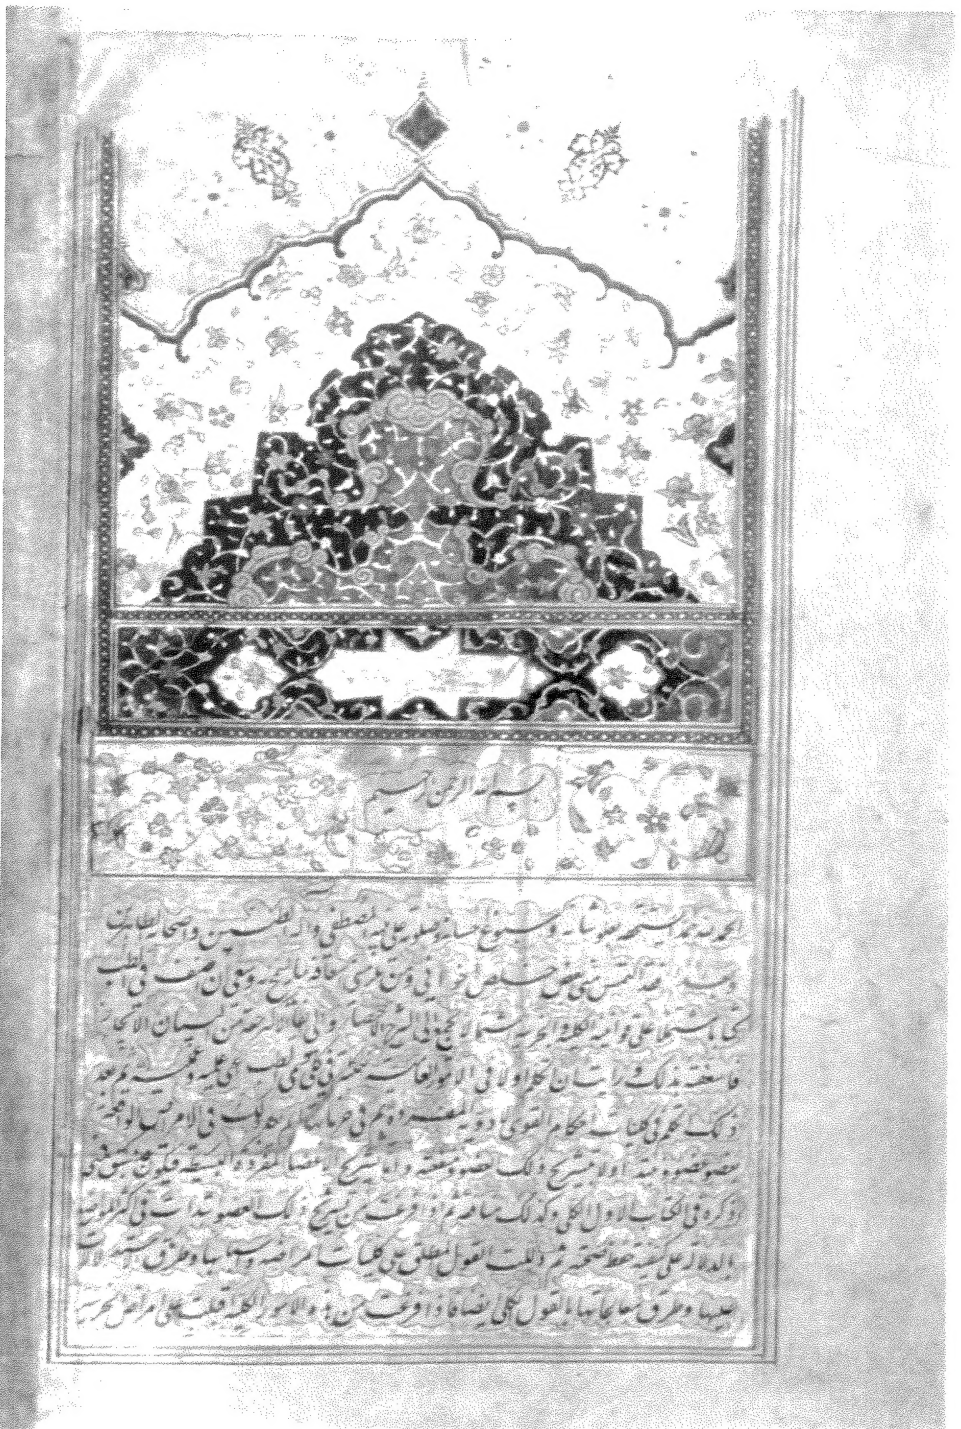 بسم الله الرحمن الرحيم
الحمد لله حمدا يستحقه بعلو شانه وسبوغ احسانه وصلوته على نبيه المصطفى واله الطيبين واصحابه الطاهرين
وبعد فقد التمس منى بعض خلص اخوانى ومن يلزمنى اسعافه بما يسمح به وسعى ان اصنف فى الطب
كتابا مشتملا على قوانينه الكلية والجزئية اشتمالا يجمع الى الشرح الاختصار والى ايفاء الاكثر حقه من البيان الايجاز
فاسعفته بذلك ورايت ان اتكلم اولا فى الامور العامة الكلية فى قسمى الطب اعنى النظرى والعملى ثم بعد
ذلك اتكلم فى كليات احكام قوى الادوية المفردة ثم فى جزئياتها ثم بعد ذلك فى الامراض الواقعة
بعضو عضو فابتدى اولا بتشريح ذلك العضو ومنفعته واما تشريح الاعضاء المفردة البسيطة فيكون قد سبق منى
ذكره فى الكتاب الاول الكلى وكذلك منافعها ثم اذا فرغت من تشريح ذلك العضو ابتدات فى اكثر المواضع
بالدلالة على كيفية حفظ صحته ثم دللت بالقول المطلق على كليات امراضه واسبابها وطرق الاستدلالات
عليها وطرق معالجاتها بالقول الكلى ايضا فاذا فرغت من هذه الامور الكلية اقبلت على الامراض الجزئية